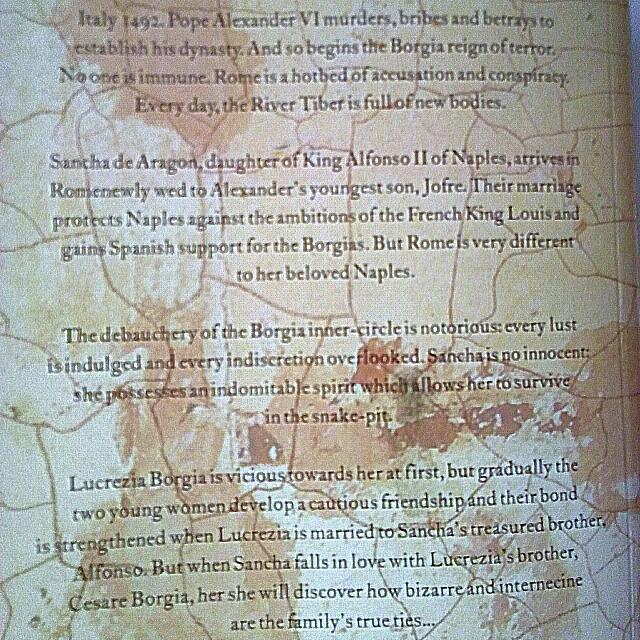 Italy 1492. Pope Alexander VI murders, bribes and betrays to
establish his dynasty. And so begins the Borgia reign of terror.
No one is immune. Rome is a hotbed of accusation and conspiracy.
Every day, the River Tiber is full of new bodies.
Sancha de Aragon, daughter of King Alfonso II of Naples, arrives in
Rome newly wed to Alexander's youngest son, Jofre. Their marriage
protects Naples against the ambitions of the French King Louis and
gains Spanish support for the Borgias. But Rome is very different
to her beloved Naples.
The debauchery of the Borgia inner-circle is notorious: every lust
is indulged and every indiscretion overlooked. Sancha is no innocent:
she possesses an indomitable spirit which allows her to survive
in the snake-pit.
Lucrezia Borgia is vicious towards her at first, but gradually the
two young women develop a cautious friendship and their bond
is strengthened when Lucrezia is married to Sancha's treasured brother,
Alfonso. But when Sancha falls in love with Lucrezia's brother,
Cesare Borgia, her she will discover how bizarre and internecine
are the family's true ties...